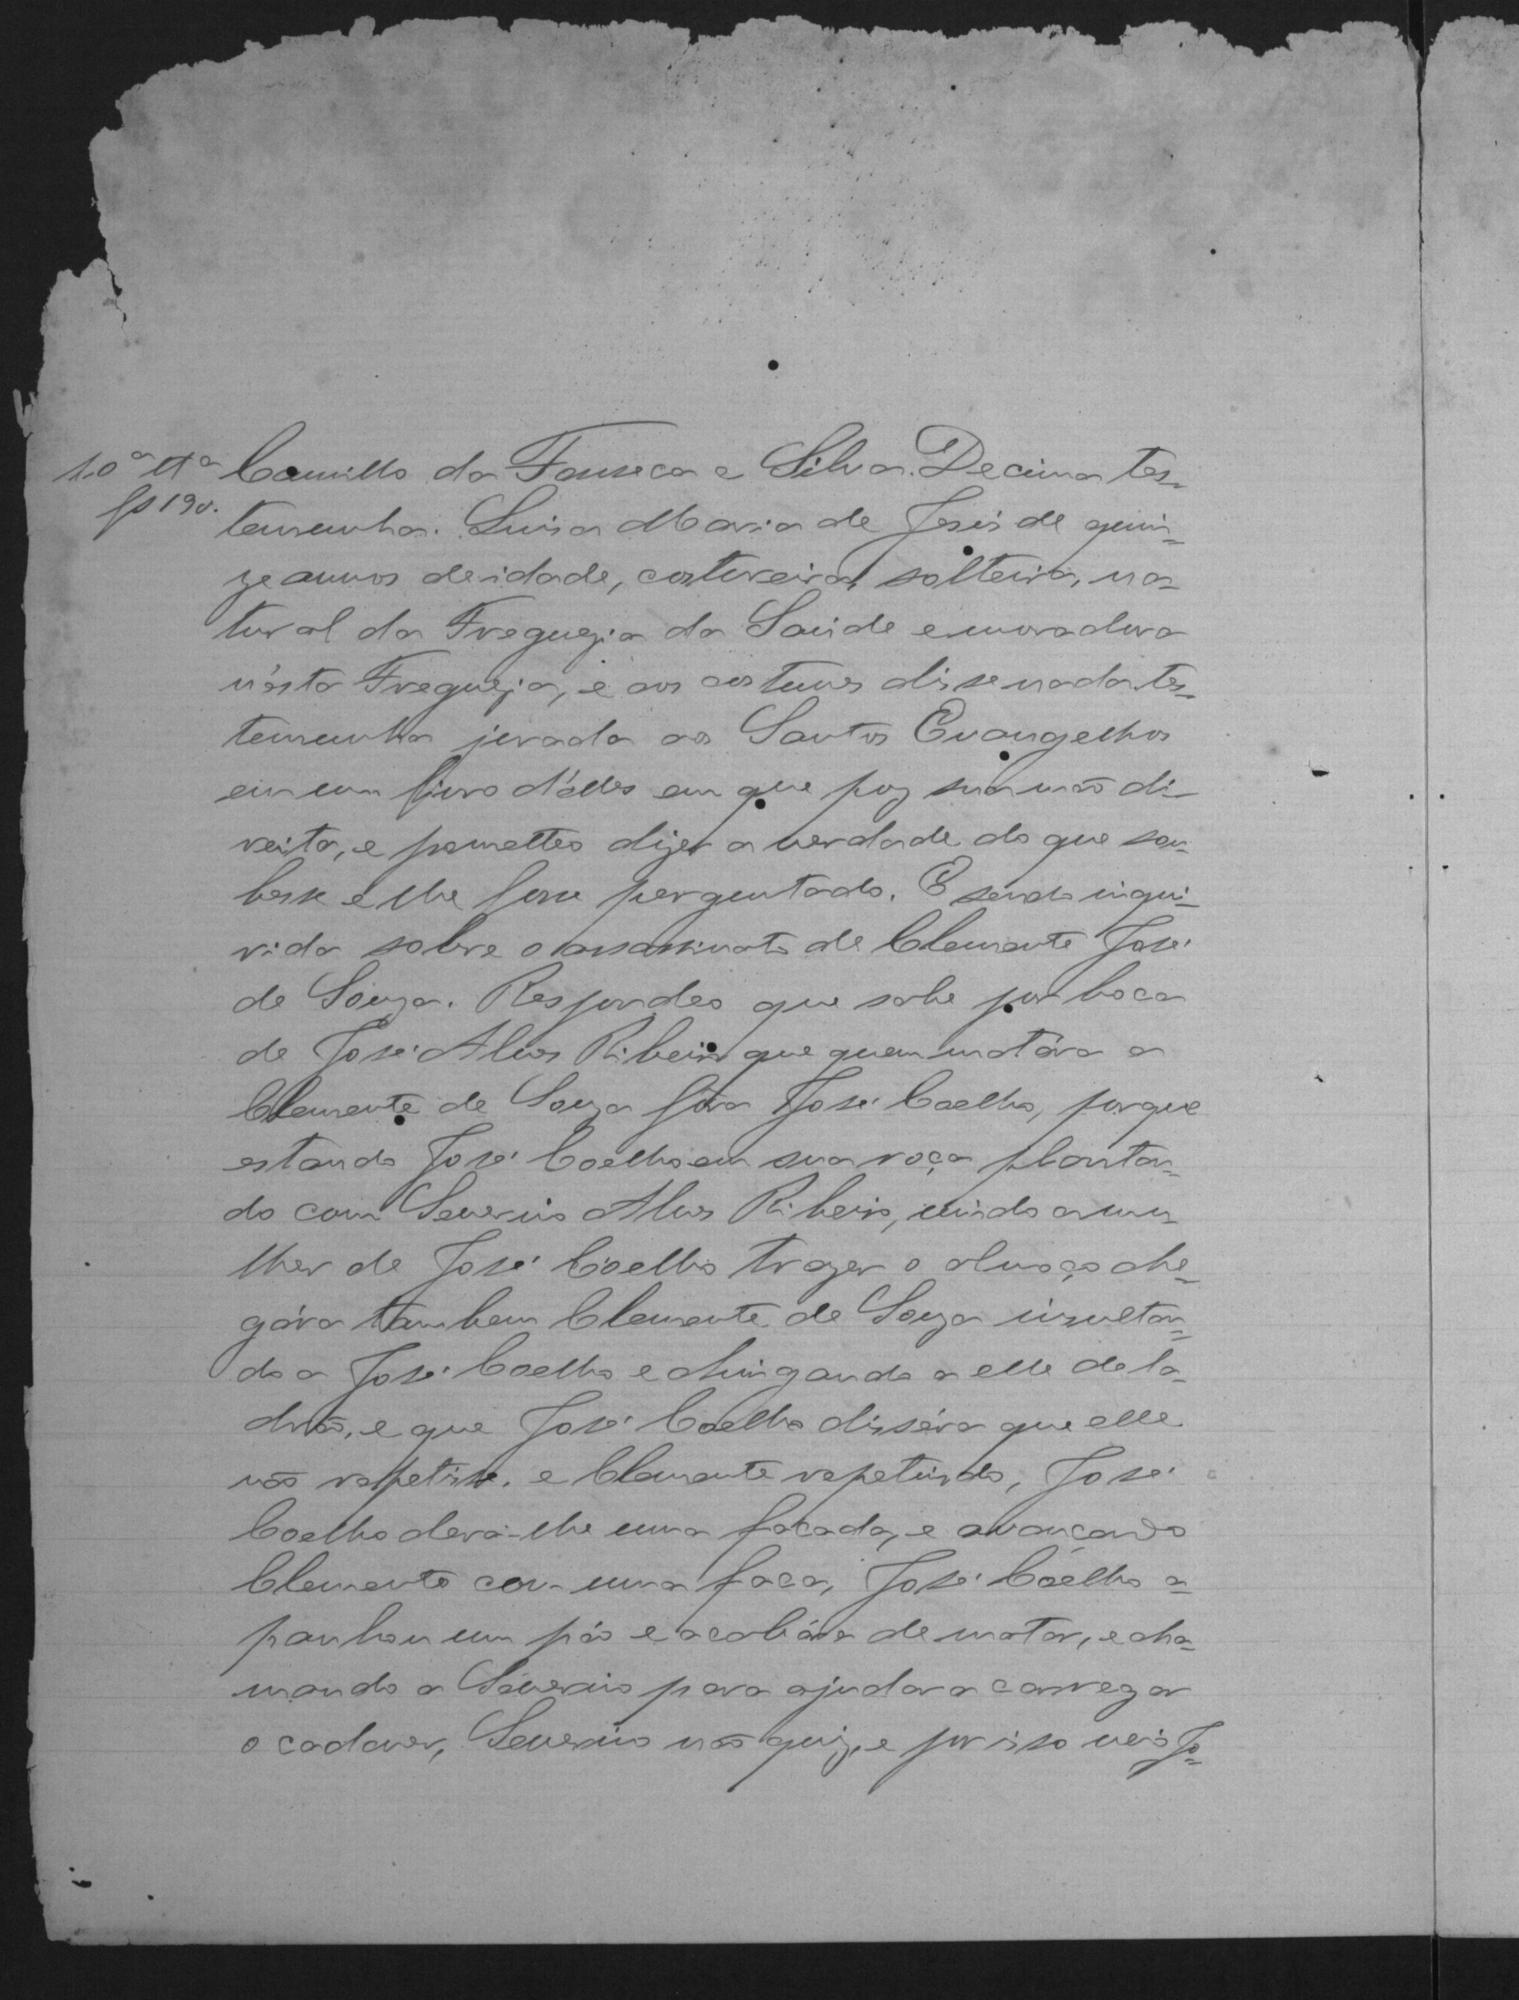 10ª tª Camillo da Fonseca e Silva. Decima tes-
fs 19v. temunha. Luisa Maria de Jesus de quin-
ze annos de idade, costureira, solteira, na-
tural da Freguezia da Saúde e moradora
n'ésta Freguezia, e aos costumes disse nada tes-
temunha jurada aos Santos Evangelhos
em um livro d'élles em que poz sua mão di-
reita, e prometteo dizer a verdade do que sou-
besse e lhe fosse perguntado. E sendo inqui-
rida sobre o assassinato de Clemente José
de Souza. Respondeo que sabe por boca
de José Alves Ribeiro que quem matára a
Clemente de Souza fôra José Coelho, porque
estando José Coelho em sua roça plantan-
do com Severino Alves Ribeiro, vindo a mu-
lher de José Coelho trazer o almoço che-
gára tambem Clemente de Souza insultan-
do a José Coelho e chingando a elle de la-
drão, e que José Coelho disséra que elle
não repetisse, e Clemente repetindo, José
Coelho dera-lhe uma facada, e avançando
Clemente com uma faca, José Coelho a-
panhou um páo e acabára de matar, e cha-
mando a Severino para ajudar a carregar
o cadaver, Severino não quiz, e por isso veio Jo-